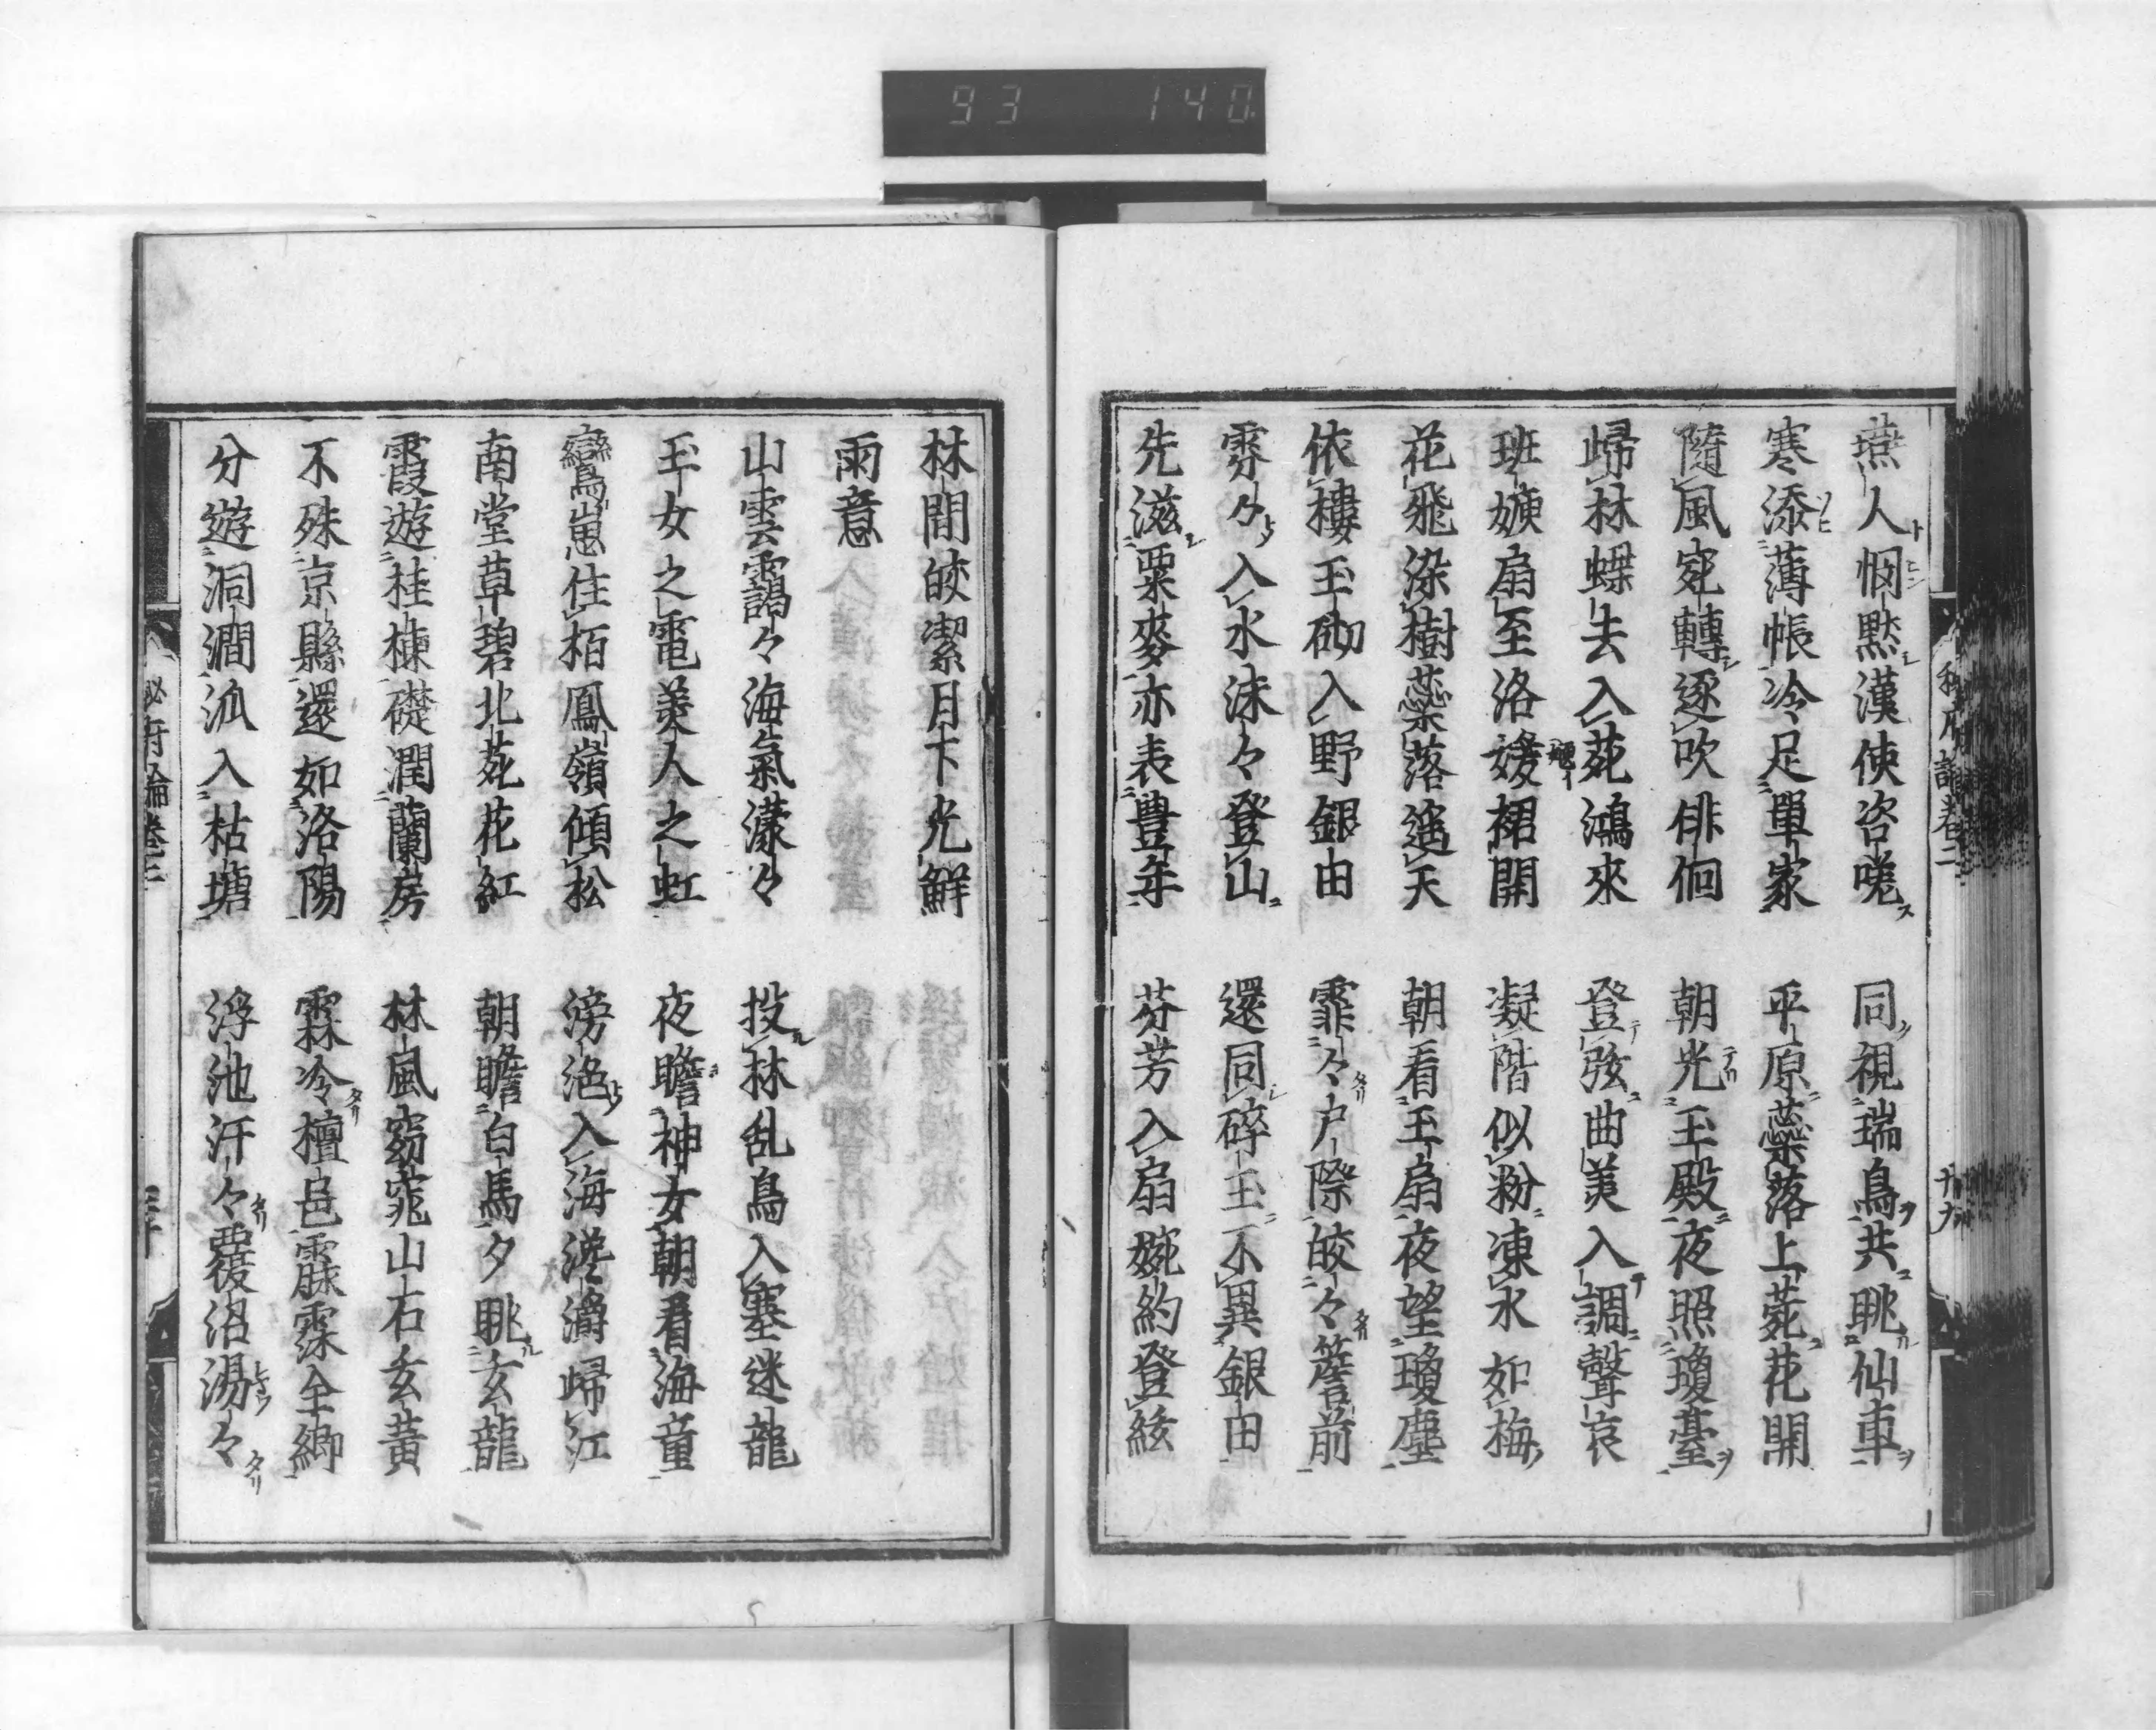 93 140
燕人悃黙漢使咨嗟 同視瑞鳥共眺仙車
寒添薄帳冷足單家 平原蘂落上菀花開
隨風宛轉逐吹俳佪 朝光玉殿夜照瓊臺
歸林蝶去入菀鴻來 登弦曲美入調聲哀
班嫂扇至洛媛裙開 凝階似粉凍水如梅
花飛染樹蘂落遥天 朝看玉扇夜望瓊塵
依樓玉砌入野銀田 霏々戸際皎々簷前
雰々入水沫々登山 還同碎玉不異銀田
先滋粟麥亦表豊年 芬芳入扇婉約登綾
林間皎潔月下光鮮
雨意
山雲靄々海氣濛々 投林乱鳥入塞迷龍
玉女之電美人之虹 夜瞻神女朝看海童
鸞崽住栢鳳嶺傾松 滂浥入海滂濎歸江
南堂草碧北菀花紅 朝瞻白馬夕眺玄龍
霞遊桂棟礎潤蘭房 林風窈窕山石玄黄
不殊京縣還如洛陽 霖冷檀邑霡霂全鄉
分遊洞澗泒入枯塘 浮池汗々覆沼湯々
秘府論卷二